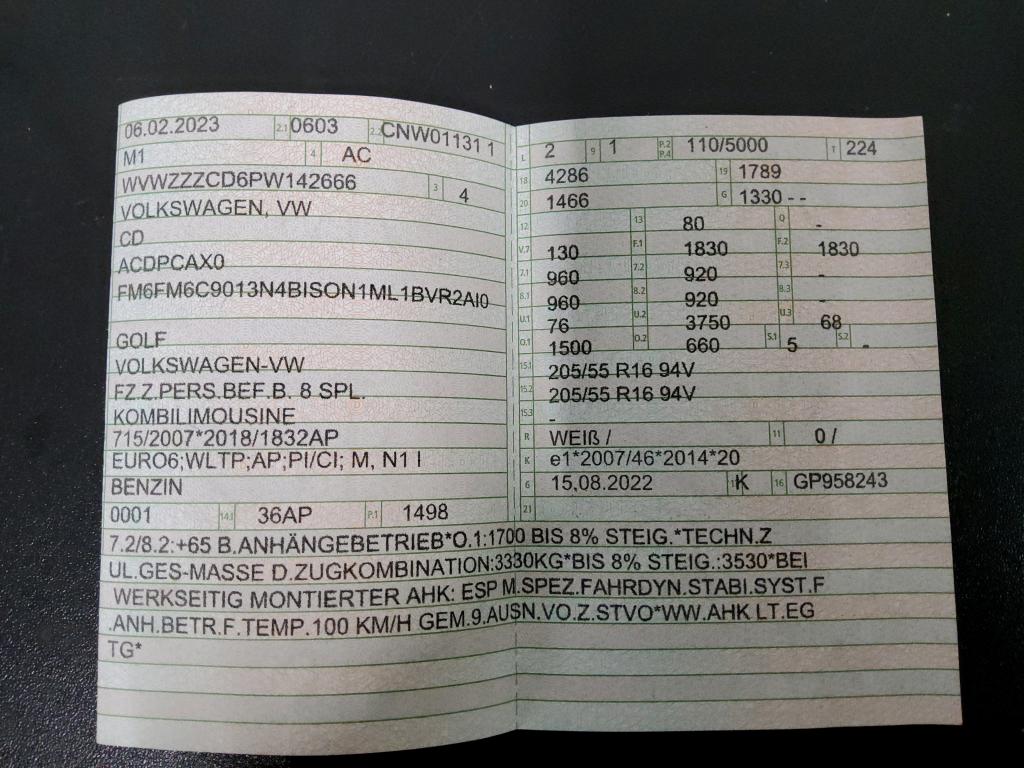 06.02.2023 2.1 0603 2.2 CNW01131 1
M1 4 AC
WVWZZZCD6PW142666 3 4
VOLKSWAGEN, VW
CD
ACDPCAX0
FM6FM6C9013N4BISON1ML1BVR2AI0
GOLF
VOLKSWAGEN-VW
FZ.Z.PERS.BEF.B. 8 SPL.
KOMBILIMOUSINE
715/2007*2018/1832AP
EURO6;WLTP;AP;PI/CI; M, N1 I
BENZIN
0001 14.1 36AP P.1 1498
L 2 9 1 P.2 P.4 110/5000 T 224
18 4286 19 1789
20 1466 G 1330 - -
12 13 80 Q -
V.7 130 F.1 1830 F.2 1830
7.1 960 7.2 920 7.3 -
8.1 960 8.2 920 8.3 -
U.1 76 U.2 3750 U.3 68
O.1 1500 O.2 660 S.1 5 S.2 -
15.1 205/55 R16 94V
15.2 205/55 R16 94V
15.3 -
R WEIß / 11 0 /
K e1*2007/46*2014*20
6 15.08.2022 K 16 GP958243
21
7.2/8.2:+65 B.ANHÄNGEBETRIEB*O.1:1700 BIS 8% STEIG.*TECHN.Z
UL.GES-MASSE D.ZUGKOMBINATION:3330KG*BIS 8% STEIG.:3530*BEI
WERKSEITIG MONTIERTER AHK: ESP M.SPEZ.FAHRDYN.STABI.SYST.F
.ANH.BETR.F.TEMP.100 KM/H GEM.9.AUSN.VO.Z.STVO*WW.AHK LT.EG
TG*